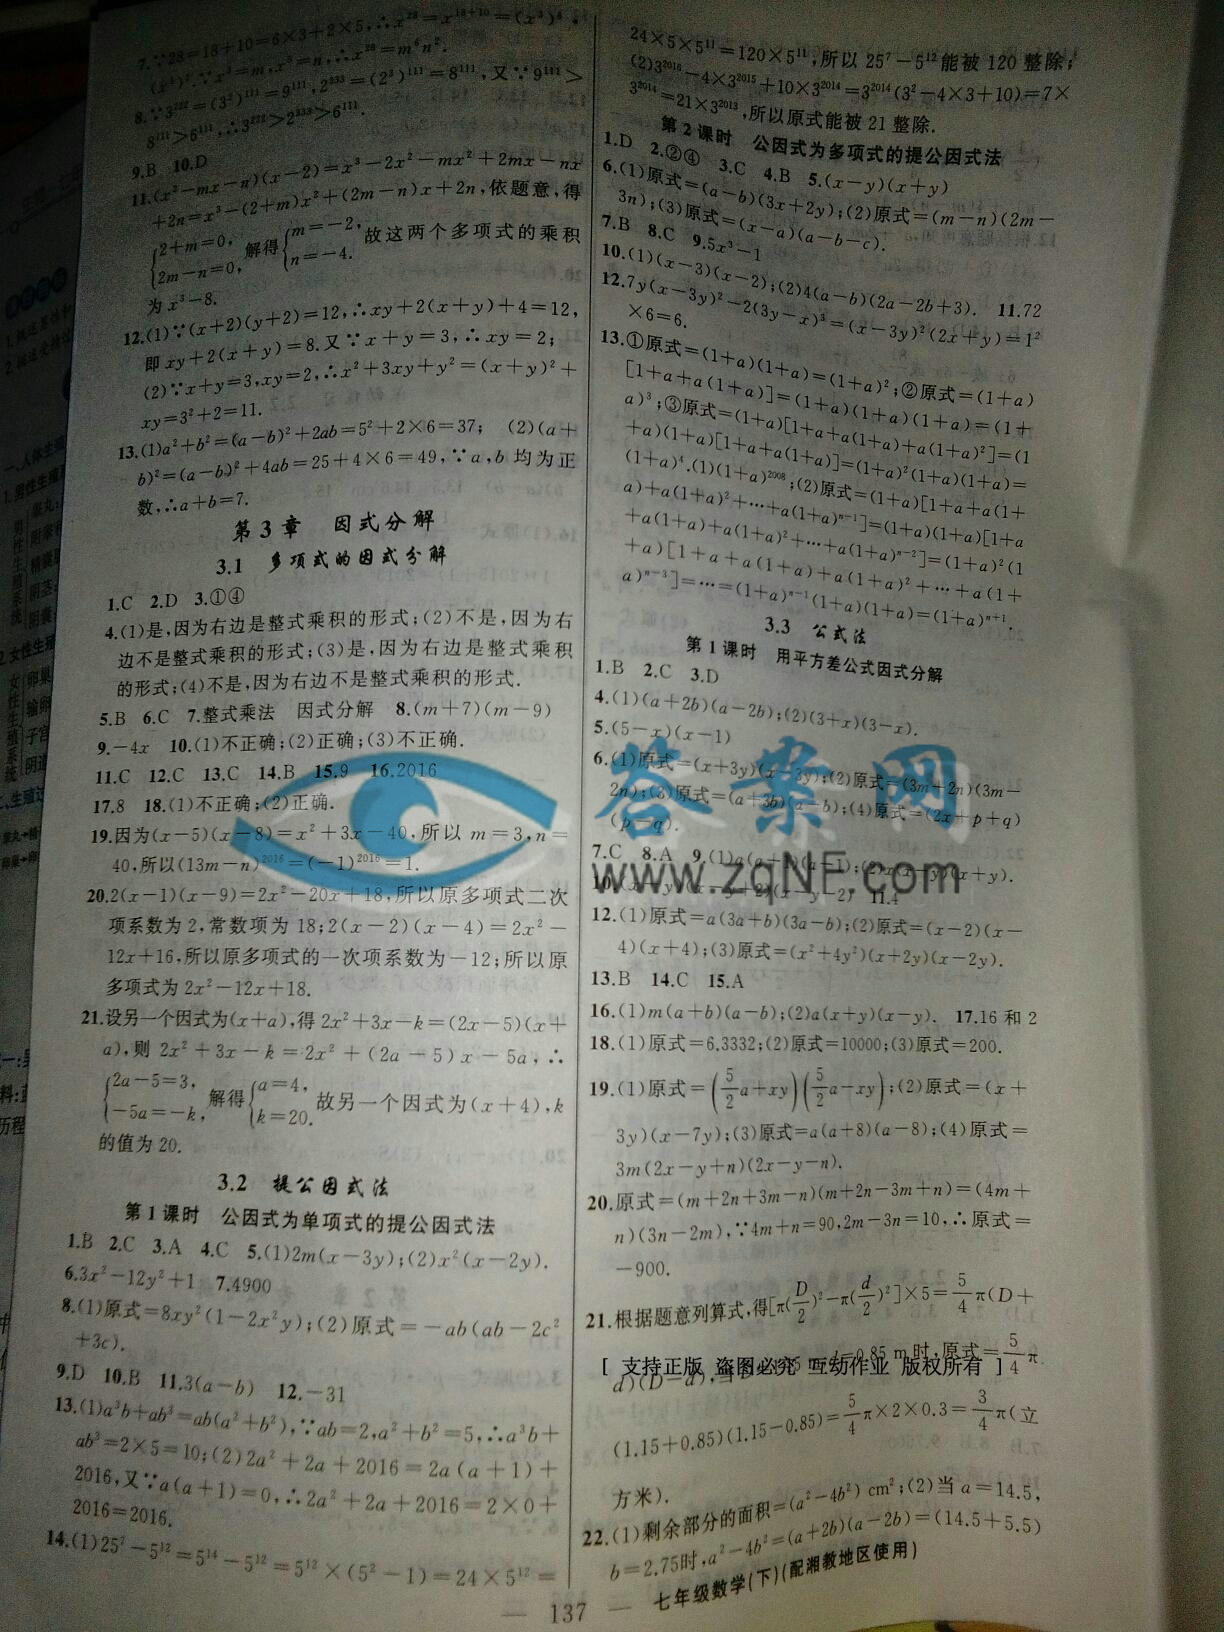 7.∵28=18+10=6×3+2×5,∴x²⁸=x¹⁸⁺¹⁰=(x³)⁶·
(x⁵)².∵x³=m,x⁵=n,∴x²⁸=m⁶n².
8.∵3²²²=(3²)¹¹¹=9¹¹¹,2³³³=(2³)¹¹¹=8¹¹¹,又∵9¹¹¹>
8¹¹¹>6¹¹¹,∴3²²²>2³³³>6¹¹¹.
9.B 10.D
11.(x²-mx-n)(x-2)=x³-2x²-mx²+2mx-nx
+2n=x³-(2+m)x²+(2m-n)x+2n,依题意,得
{2+m=0, 2m-n=0, 解得{m=-2, n=-4. 故这两个多项式的乘积
为x³-8.
12.(1)∵(x+2)(y+2)=12,∴xy+2(x+y)+4=12,
即xy+2(x+y)=8.又∵x+y=3,∴xy=2;
(2)∵x+y=3,xy=2,∴x²+3xy+y²=(x+y)²+
xy=3²+2=11.
13.(1)a²+b²=(a-b)²+2ab=5²+2×6=37; (2)(a+
b)²=(a-b)²+4ab=25+4×6=49,∵a,b均为正
数,∴a+b=7.
第3章 因式分解
3.1 多项式的因式分解
1.C 2.D 3.①④
4.(1)是,因为右边是整式乘积的形式;(2)不是,因为右
边不是整式乘积的形式;(3)是,因为右边是整式乘积
的形式;(4)不是,因为右边不是整式乘积的形式.
5.B 6.C 7.整式乘法 因式分解 8.(m+7)(m-9)
9.-4x 10.(1)不正确;(2)正确;(3)不正确.
11.C 12.C 13.C 14.B 15.9 16.2016
17.8 18.(1)不正确;(2)正确.
19.因为(x-5)(x-8)=x²+3x-40,所以m=3,n=
40,所以(13m-n)²⁰¹⁶=(-1)²⁰¹⁶=1.
20.2(x-1)(x-9)=2x²-20x+18,所以原多项式二次
项系数为2,常数项为18;2(x-2)(x-4)=2x²-
12x+16,所以原多项式的一次项系数为-12;所以原
多项式为2x²-12x+18.
21.设另一个因式为(x+a),得2x²+3x-k=(2x-5)(x+
a),则2x²+3x-k=2x²+(2a-5)x-5a,∴
{2a-5=3, -5a=-k, 解得{a=4, k=20. 故另一个因式为(x+4),k
的值为20.
3.2 提公因式法
第1课时 公因式为单项式的提公因式法
1.B 2.C 3.A 4.C 5.(1)2m(x-3y);(2)x²(x-2y).
6.3x²-12y²+1 7.4900
8.(1)原式=8xy²(1-2x²y);(2)原式=-ab(ab-2c²
+3c).
9.D 10.B 11.3(a-b) 12.-31
13.(1)a³b+ab³=ab(a²+b²),∵ab=2,a²+b²=5,∴a³b+
ab³=2×5=10;(2)2a²+2a+2016=2a(a+1)+
2016,又∵a(a+1)=0,∴2a²+2a+2016=2×0+
2016=2016.
14.(1)25⁷-5¹²=5¹⁴-5¹²=5¹²×(5²-1)=24×5¹²=
24×5×5¹¹=120×5¹¹,所以25⁷-5¹²能被120整除;
(2)3²⁰¹⁶-4×3²⁰¹⁵+10×3²⁰¹⁴=3²⁰¹⁴(3²-4×3+10)=7×
3²⁰¹⁴=21×3²⁰¹³,所以原式能被21整除.
第2课时 公因式为多项式的提公因式法
1.D 2.②④ 3.C 4.B 5.(x-y)(x+y)
6.(1)原式=(a-b)(3x+2y);(2)原式=(m-n)(2m-
3n);(3)原式=(x-a)(a-b-c).
7.B 8.C 9.5x³-1
10.(1)(x-3)(x-2);(2)4(a-b)(2a-2b+3). 11.72
12.7y(x-3y)²-2(3y-x)³=(x-3y)²(2x+y)=1²
×6=6.
13.①原式=(1+a)(1+a)=(1+a)²;②原式=(1+a)
[1+a+a(1+a)]=(1+a)(1+a)(1+a)=(1+
a)³;③原式=(1+a)[1+a+a(1+a)+a(1+a)²]=(1
+a)(1+a)[1+a+a(1+a)]=(1+a)²(1+a)(1+a)=
(1+a)⁴.(1)(1+a)²⁰⁰⁸;(2)原式=(1+a)[1+a+a(1+
a)+a(1+a)²+…+a(1+a)ⁿ⁻¹]=(1+a)(1+a)[1+a
+a(1+a)+a(1+a)²+…+a(1+a)ⁿ⁻²]=(1+a)²(1
+a)[1+a+a(1+a)+a(1+a)²+…+a(1+
a)ⁿ⁻³]=…=(1+a)ⁿ⁻¹(1+a)(1+a)=(1+a)ⁿ⁺¹.
3.3 公式法
第1课时 用平方差公式因式分解
1.B 2.C 3.D
4.(1)(a+2b)(a-2b);(2)(3+x)(3-x).
5.(5-x)(x-1)
6.(1)原式=(x+3y)(x-3y);(2)原式=(3m+2n)(3m-
2n);(3)原式=(a+3b)(a-b);(4)原式=(2x+p+q)
(p-q).
答案网
www.zqNF.com
7.C 8.A 9.(1)
10. 11.4
12.(1)原式=a(3a+b)(3a-b);(2)原式=(x-2)(x-
4)(x+4);(3)原式=(x²+4y²)(x+2y)(x-2y).
13.B 14.C 15.A
16.(1)m(a+b)(a-b);(2)a(x+y)(x-y). 17.16和2
18.(1)原式=6.3332;(2)原式=10000;(3)原式=200.
19.(1)原式=(5/2a+xy)(5/2a-xy);(2)原式=(x+
3y)(x-7y);(3)原式=a(a+8)(a-8);(4)原式=
3m(2x-y+n)(2x-y-n).
20.原式=(m+2n+3m-n)(m+2n-3m+n)=(4m+
n)(3n-2m),∵4m+n=90,2m-3n=10,∴原式=
-900.
21.根据题意列算式,得[π(D/2)²-π(d/2)²]×5=5/4π(D+
d)(D-d),当 0.85 m时,原式=5/4π
[ 支持正版 盗图必究 互动作业 版权所有 ]
(1.15+0.85)(1.15-0.85)=5/4π×2×0.3=3/4π(立
方米).
22.(1)剩余部分的面积=(a²-4b²) cm²;(2)当a=14.5,
b=2.75时,a²-4b²=(a+2b)(a-2b)=(14.5+5.5)
— 137 — 七年级数学(下)(配湘教地区使用)